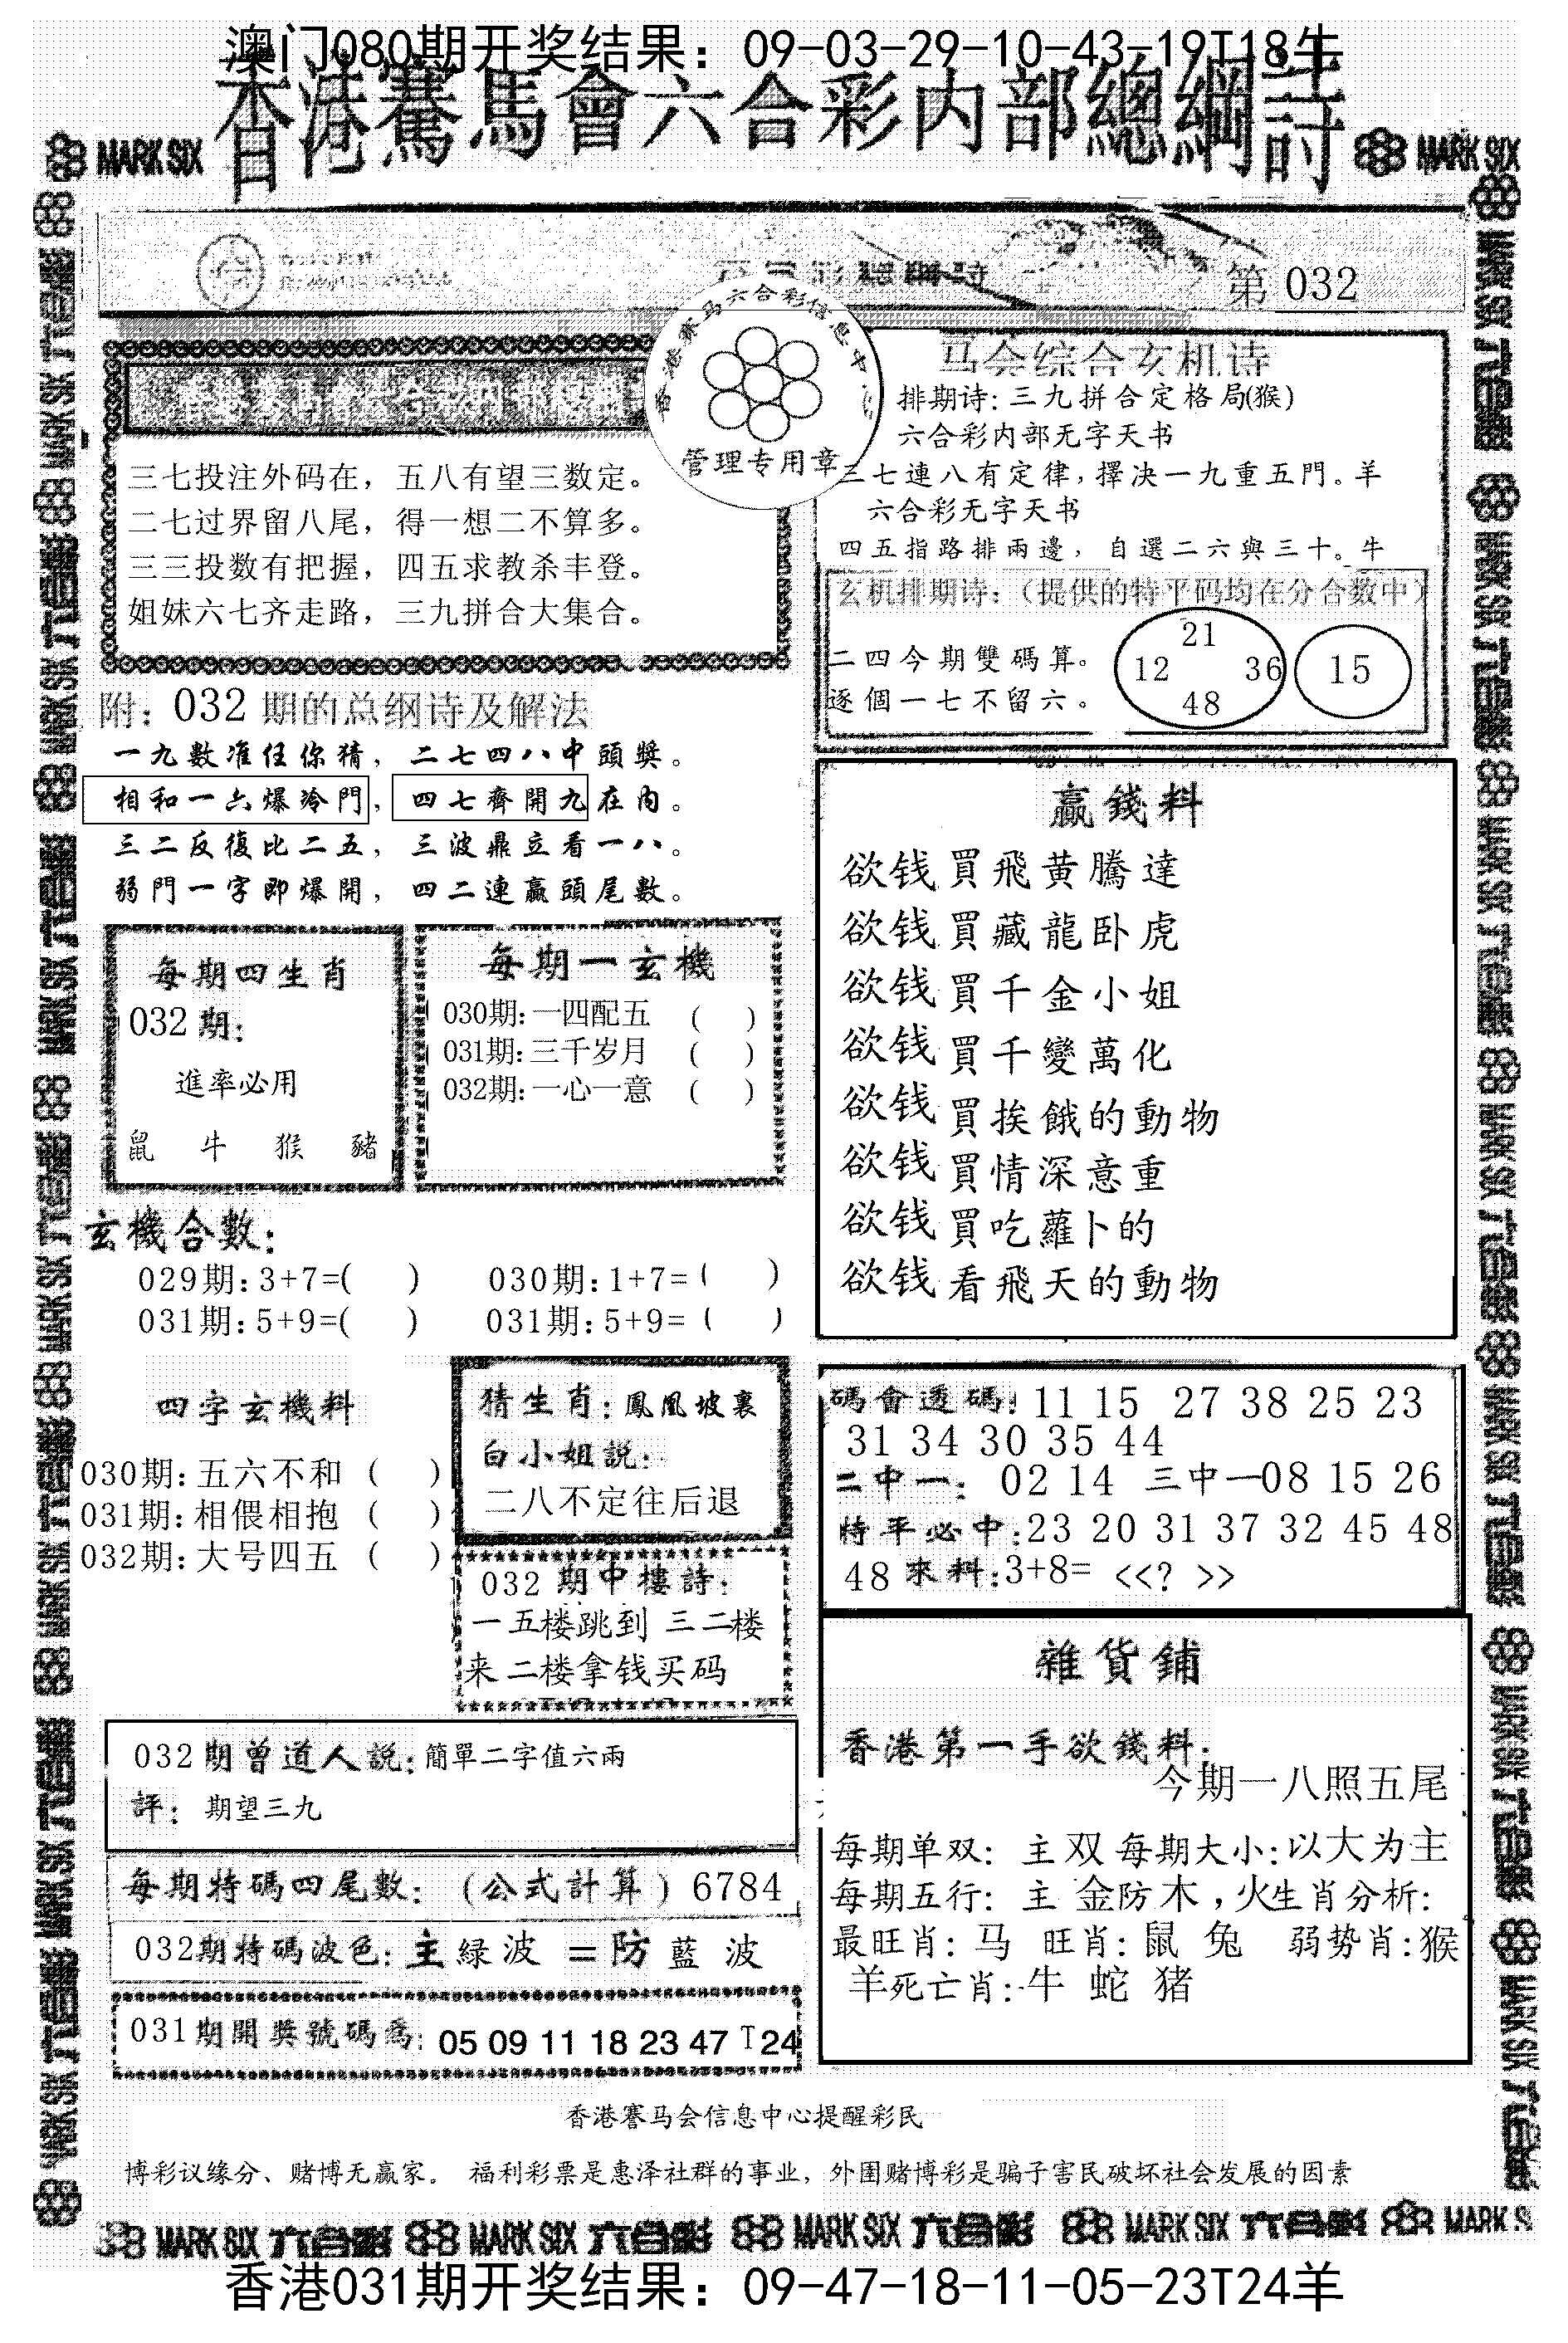 澳门080期开奖结果：09-03-29-10-43-19T18牛
香港賽馬會六合彩内部總綱詩
MARK SIX
MARK SIX
第 032
香港赛马六合彩信息中心
管理专用章
三七投注外码在，五八有望三数定。
二七过界留八尾，得一想二不算多。
三三投数有把握，四五求教杀丰登。
姐妹六七齐走路，三九拼合大集合。
马会综合玄机诗
排期诗：三九拼合定格局(猴)
六合彩内部无字天书
三七連八有定律，擇决一九重五門。羊
六合彩无字天书
四五指路排兩邊，自選二六與三十。牛
玄机排期诗：（提供的特平码均在分合数中）
二四今期雙碼算。
逐個一七不留六。
21
12 36
48
15
附：032期的总纲诗及解法
一九數准任你猜，二七四八中頭獎。
相和一六爆冷門，四七齊開九在内。
三二反復比二五，三波鼎立看一八。
弱門一字即爆開，四二連贏頭尾數。
每期四生肖
032期：
進率必用
鼠 牛 猴 豬
每期一玄機
030期：一四配五（ ）
031期：三千岁月（ ）
032期：一心一意（ ）
贏錢料
欲钱買飛黄騰達
欲钱買藏龍卧虎
欲钱買千金小姐
欲钱買千變萬化
欲钱買挨餓的動物
欲钱買情深意重
欲钱買吃蘿卜的
欲钱看飛天的動物
玄機合數：
029期：3+7=( ) 030期：1+7=( )
031期：5+9=( ) 031期：5+9=( )
四字玄機料
030期：五六不和（ ）
031期：相偎相抱（ ）
032期：大号四五（ ）
猜生肖：鳳凰坡裏
白小姐説：
二八不定往后退
032期中樓詩：
一五楼跳到 三二楼
来二楼拿钱买码
碼會透碼：11 15 27 38 25 23
31 34 30 35 44
二中一：02 14 三中一08 15 26
特平必中：23 20 31 37 32 45 48
48來料：3+8= <<? >>
032期曾道人説：簡單二字值六兩
評：期望三九
每期特碼四尾數：（公式計算）6784
032期特碼波色：主绿波＝防藍波
031期開獎號碼為：05 09 11 18 23 47 T24
雜貨鋪
香港第一手欲錢料：
今期一八照五尾
每期单双：主双 每期大小：以大为主
每期五行：主 金防木，火生肖分析：
最旺肖：马 旺肖：鼠 兔 弱势肖：猴
羊死亡肖：牛 蛇 猪
香港赛马会信息中心提醒彩民
博彩议缘分、赌博无赢家。 福利彩票是惠泽社群的事业，外围赌博彩是骗子害民破坏社会发展的因素
MARK SIX 六合彩 MARK SIX 六合彩 MARK SIX 六合彩 MARK SIX 六合彩 MARK S
香港031期开奖结果：09-47-18-11-05-23T24羊